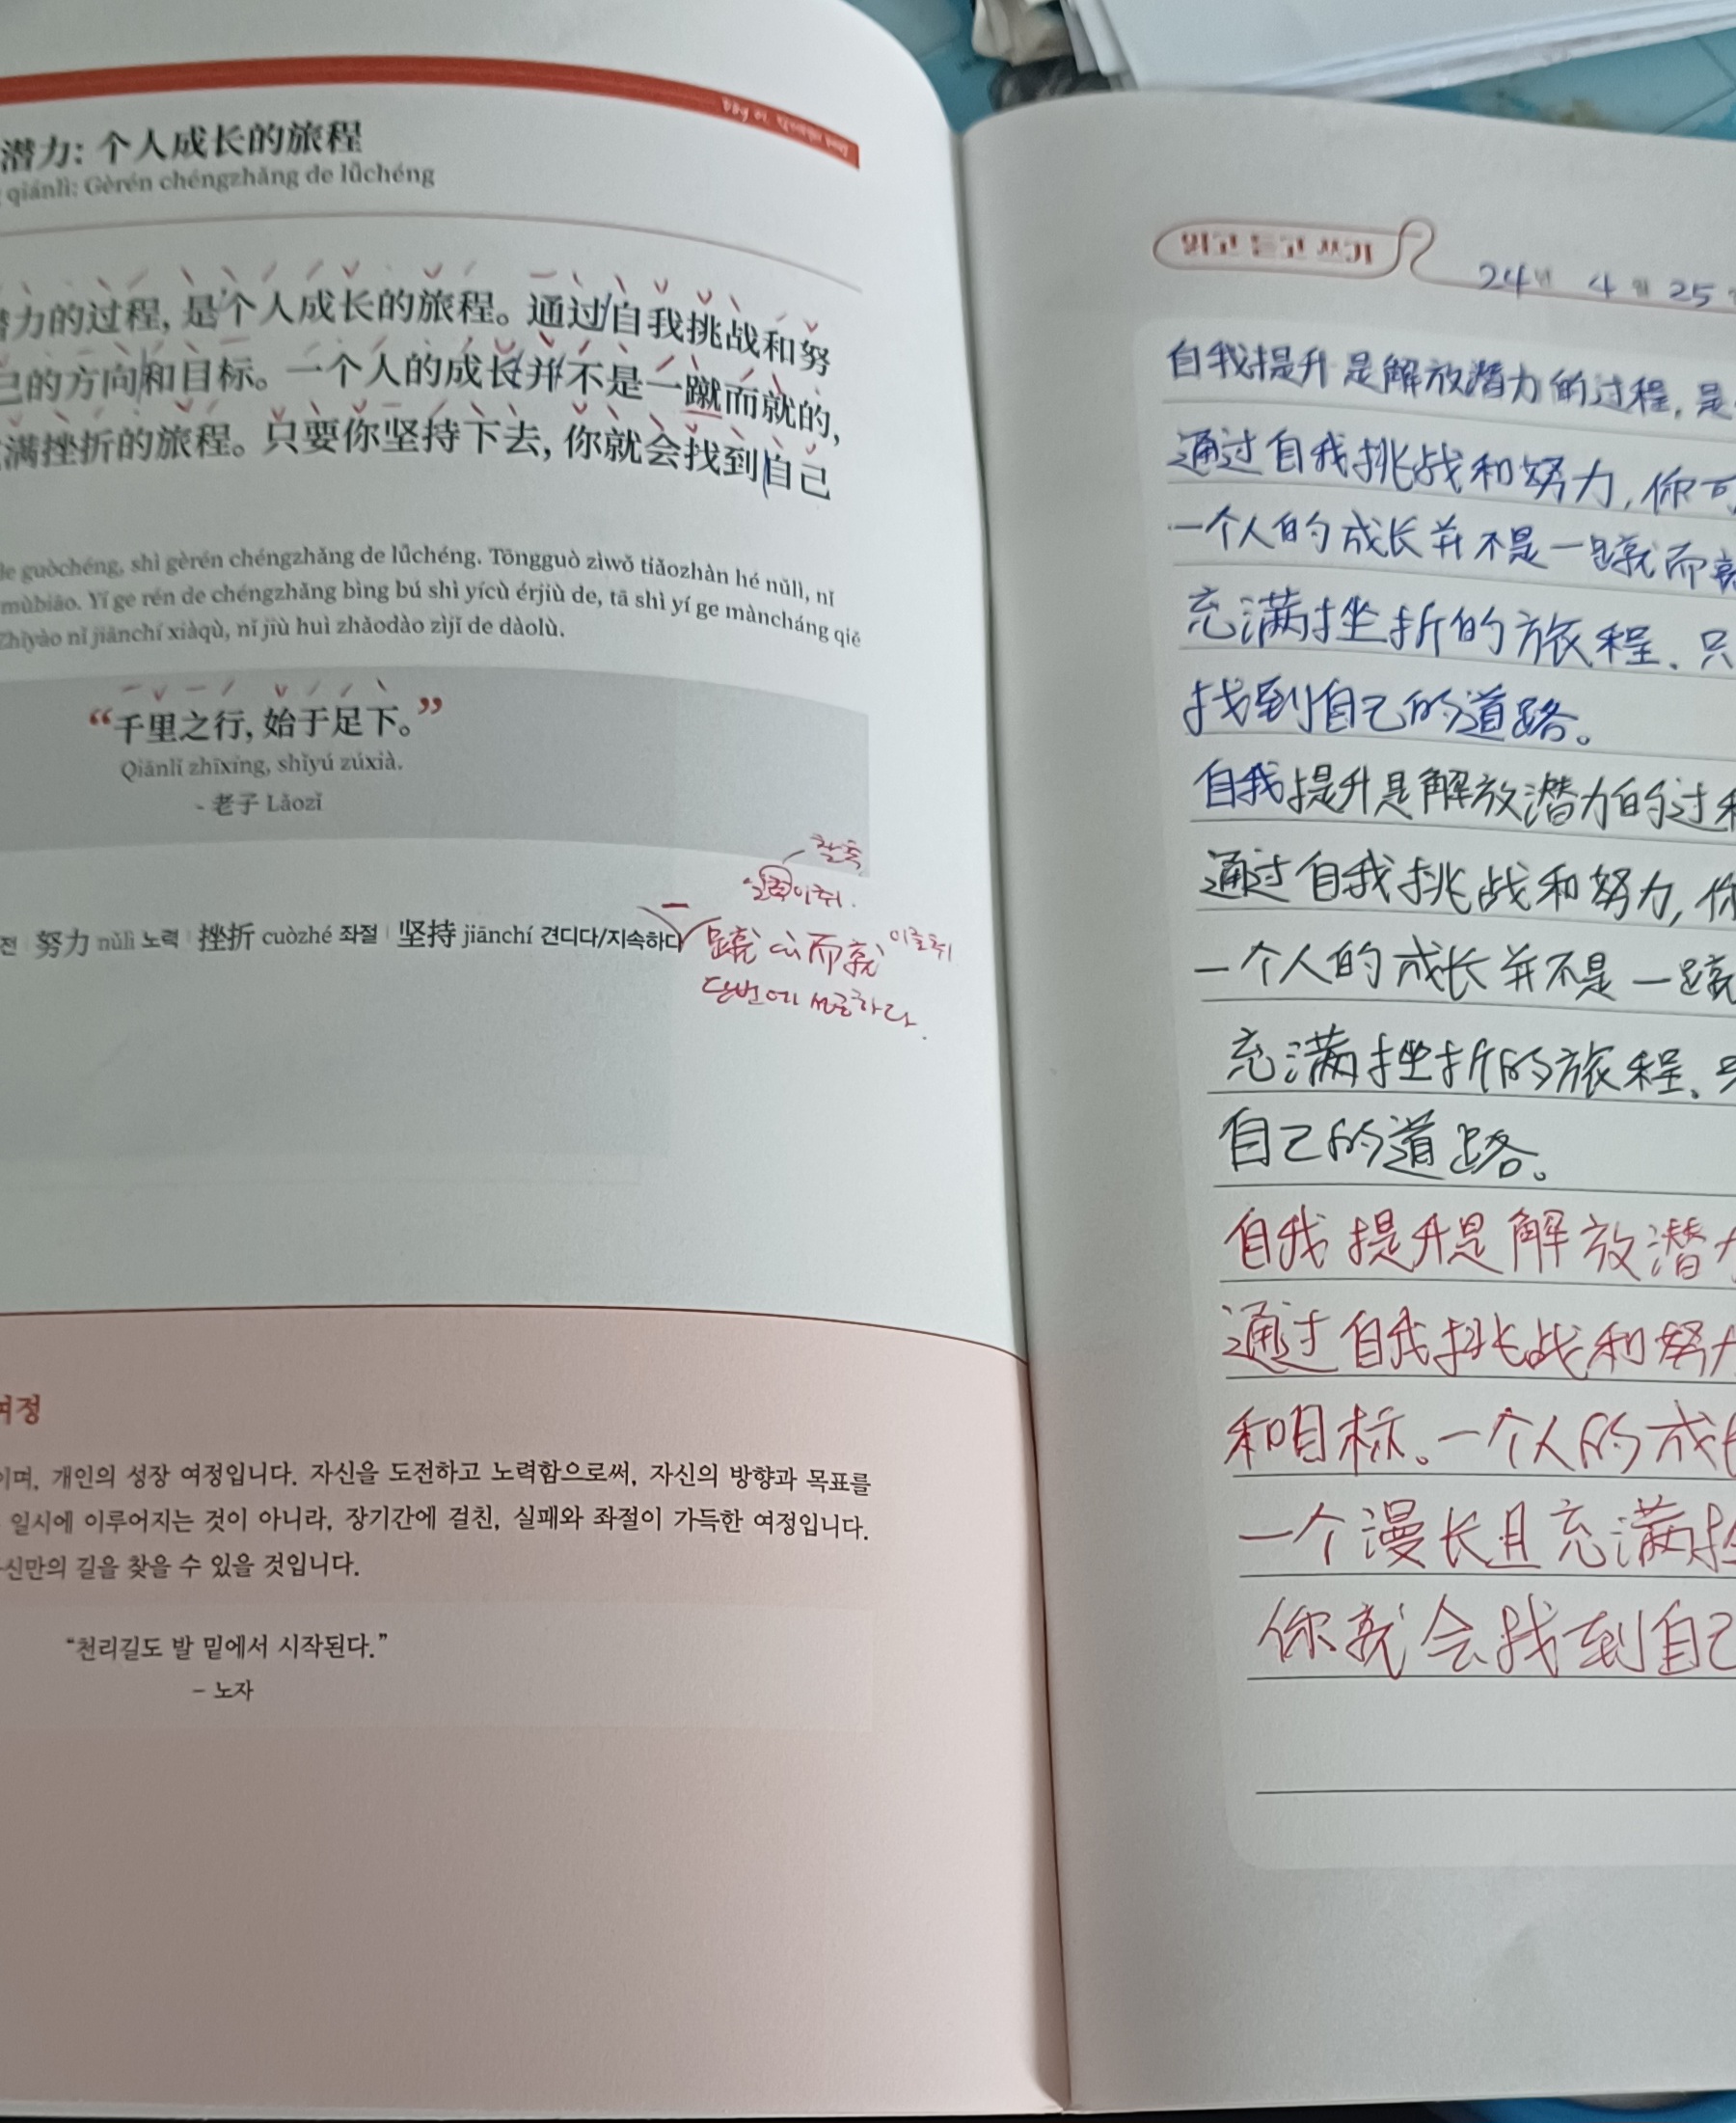 潜力: 个人成长的旅程
qiánlì: Gèrén chéngzhǎng de lǚchéng
力的过程, 是个人成长的旅程。通过自我挑战和努
己的方向和目标。一个人的成长并不是一蹴而就的,
满挫折的旅程。只要你坚持下去, 你就会找到自己
de guòchéng, shì gèrén chéngzhǎng de lǚchéng. Tōngguò zìwǒ tiǎozhàn hé nǔlì, nǐ
mùbiāo. Yí ge rén de chéngzhǎng bìng bú shì yícù érjiù de, tā shì yí ge màncháng qiě
Zhǐyào nǐ jiānchí xiàqù, nǐ jiù huì zhǎodào zìjǐ de dàolù.
“千里之行, 始于足下。”
Qiānlǐ zhīxíng, shǐyú zúxià.
- 老子 Lǎozǐ
찰축
일축이취.
전 努力 nǔlì 노력 挫折 cuòzhé 좌절 坚持 jiānchí 견디다/지속하다
一蹴 cù 而就 이룰취
단번에 성공하다.
여정
이며, 개인의 성장 여정입니다. 자신을 도전하고 노력함으로써, 자신의 방향과 목표를
일시에 이루어지는 것이 아니라, 장기간에 걸친, 실패와 좌절이 가득한 여정입니다.
신만의 길을 찾을 수 있을 것입니다.
“천리길도 발 밑에서 시작된다.”
– 노자
읽고 듣고 쓰기
24년 4월 25
自我提升是解放潜力的过程, 是
通过自我挑战和努力, 你可
一个人的成长并不是一蹴而就
充满挫折的旅程. 只
找到自己的道路。
自我提升是解放潜力的过程
通过自我挑战和努力, 你
一个人的成长并不是一蹴
充满挫折的旅程. 只
自己的道路。
自我提升是解放潜力
通过自我挑战和努力
和目标。一个人的成长
一个漫长且充满挫
你就会找到自己